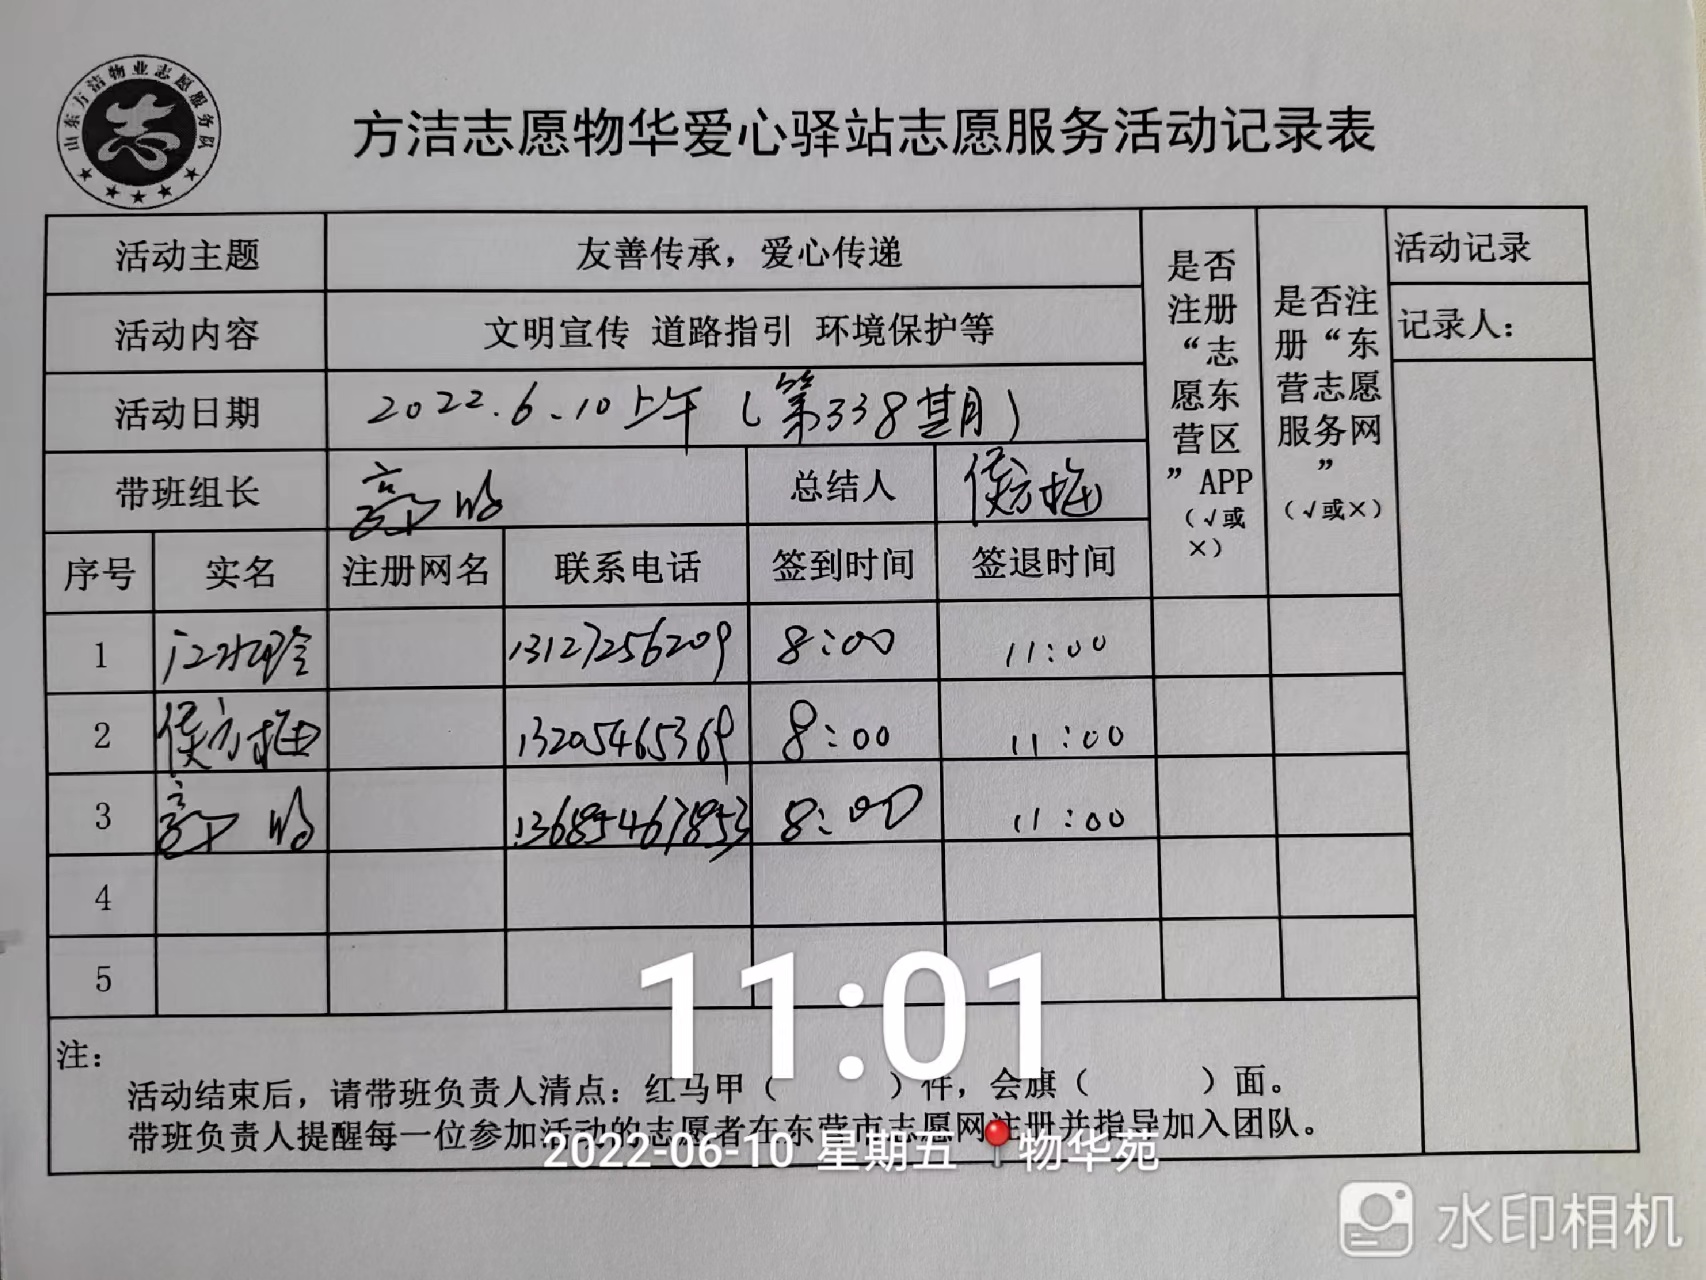 山东方洁物业志愿服务队
志
方洁志愿物华爱心驿站志愿服务活动记录表
活动主题 友善传承，爱心传递
活动内容 文明宣传 道路指引 环境保护等
活动日期 2022.6.10上午（第338期）
带班组长 高 总结人 侯方梅
是否注册“志愿东营区”APP（√或×）
是否注册“东营志愿服务网”（√或×）
活动记录
记录人：
序号 实名 注册网名 联系电话 签到时间 签退时间
1 13127256209 8:00 11:00
2 侯方梅 13205465369 8:00 11:00
3 高 13685467853 8:00 11:00
4
5
11:01
注：
活动结束后，请带班负责人清点：红马甲（ ）件，会旗（ ）面。
带班负责人提醒每一位参加活动的志愿者在东营市志愿网注册并指导加入团队。
2022-06-10 星期五 物华苑
水印相机